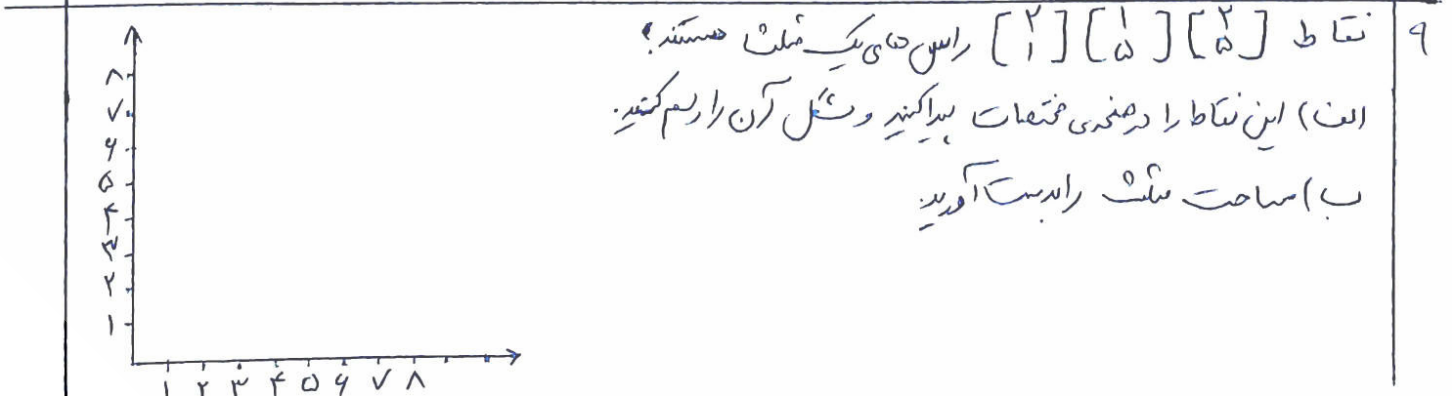 ۹ نقاط [۳ ۵] [۱ ۵] [۲ ۱] راس های یک مثلث هستند؟
الف) این نقاط را در صفحه‌ی مختصات پیدا کنید و شکل آن را رسم کنید.
ب) مساحت مثلث را بدست آورید.
۸
۷
۶
۵
۴
۳
۲
۱
۱ ۲ ۳ ۴ ۵ ۶ ۷ ۸